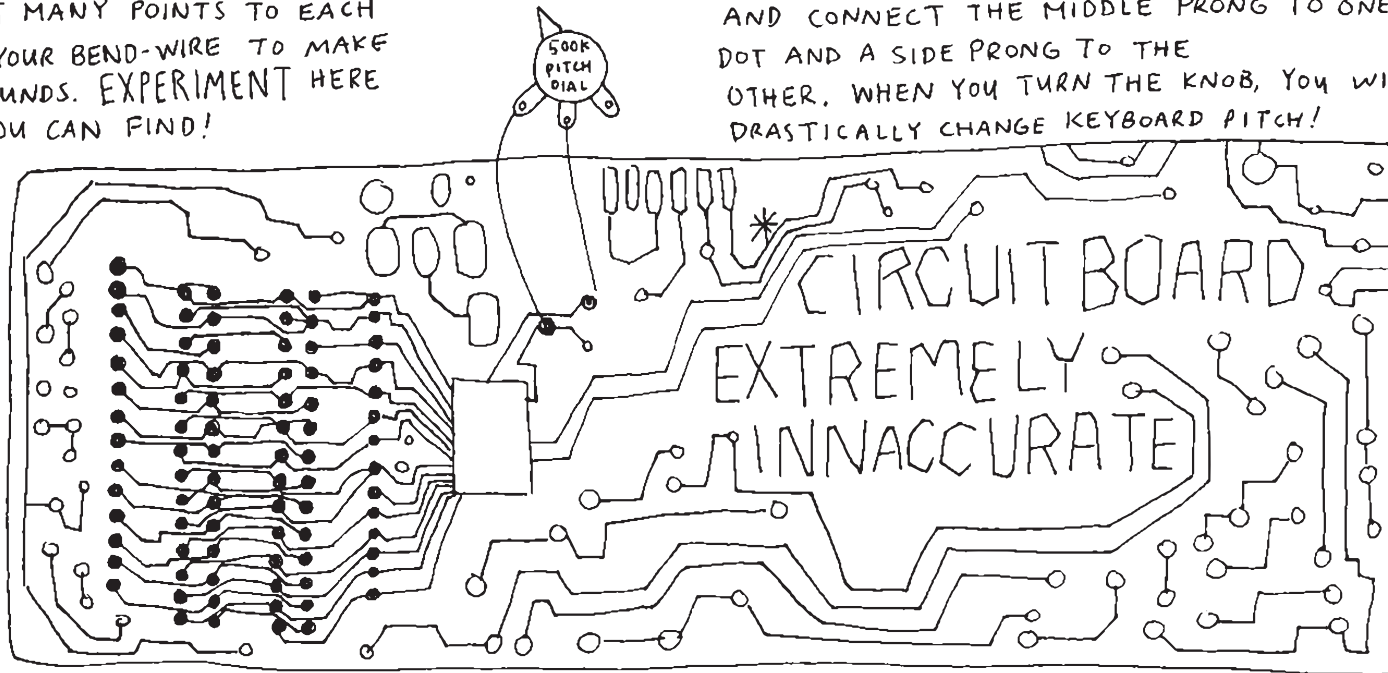 T MANY POINTS TO EACH
YOUR BEND-WIRE TO MAKE
UNDS. EXPERIMENT HERE
OU CAN FIND!
500K
PITCH
DIAL
AND CONNECT THE MIDDLE PRONG TO ONE
DOT AND A SIDE PRONG TO THE
OTHER. WHEN YOU TURN THE KNOB, YOU WI
DRASTICALLY CHANGE KEYBOARD PITCH!
CIRCUIT BOARD
EXTREMELY
INNACCURATE